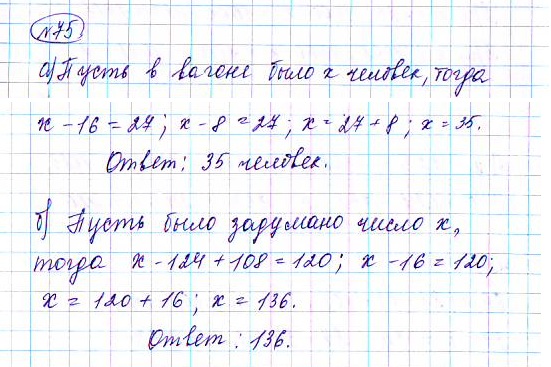 №75
а) Пусть в вагоне было x человек, тогда
x - 16 = 27; x - 8 = 27; x = 27 + 8; x = 35.
Ответ: 35 человек.
б) Пусть было задумано число x,
тогда x - 124 + 108 = 120; x - 16 = 120;
x = 120 + 16; x = 136.
Ответ: 136.